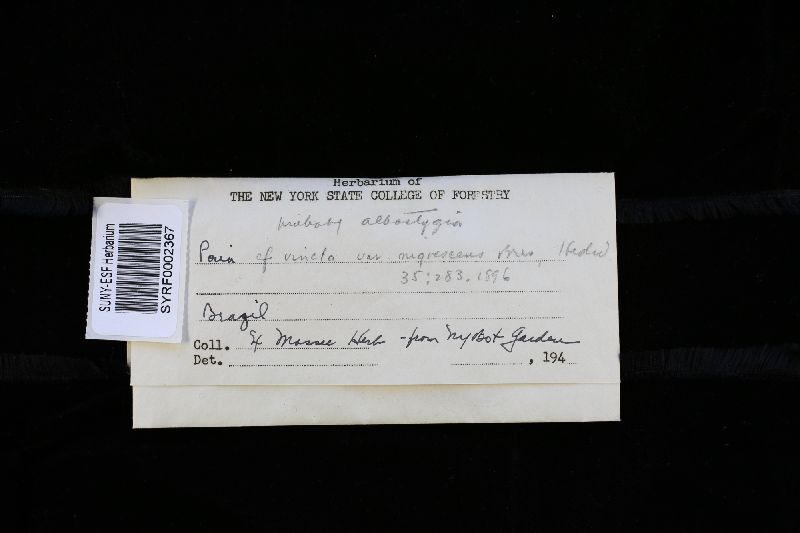 Herbarium of
THE NEW YORK STATE COLLEGE OF FORESTRY
probably albostygia
Poria cf vincta var nigrescens Bres, Hedw
35:283.1896
Brazil
Coll. Ex Massee Herb - from NY Bot Garden
Det. , 194
SUNY-ESF Herbarium
SYRF0002367